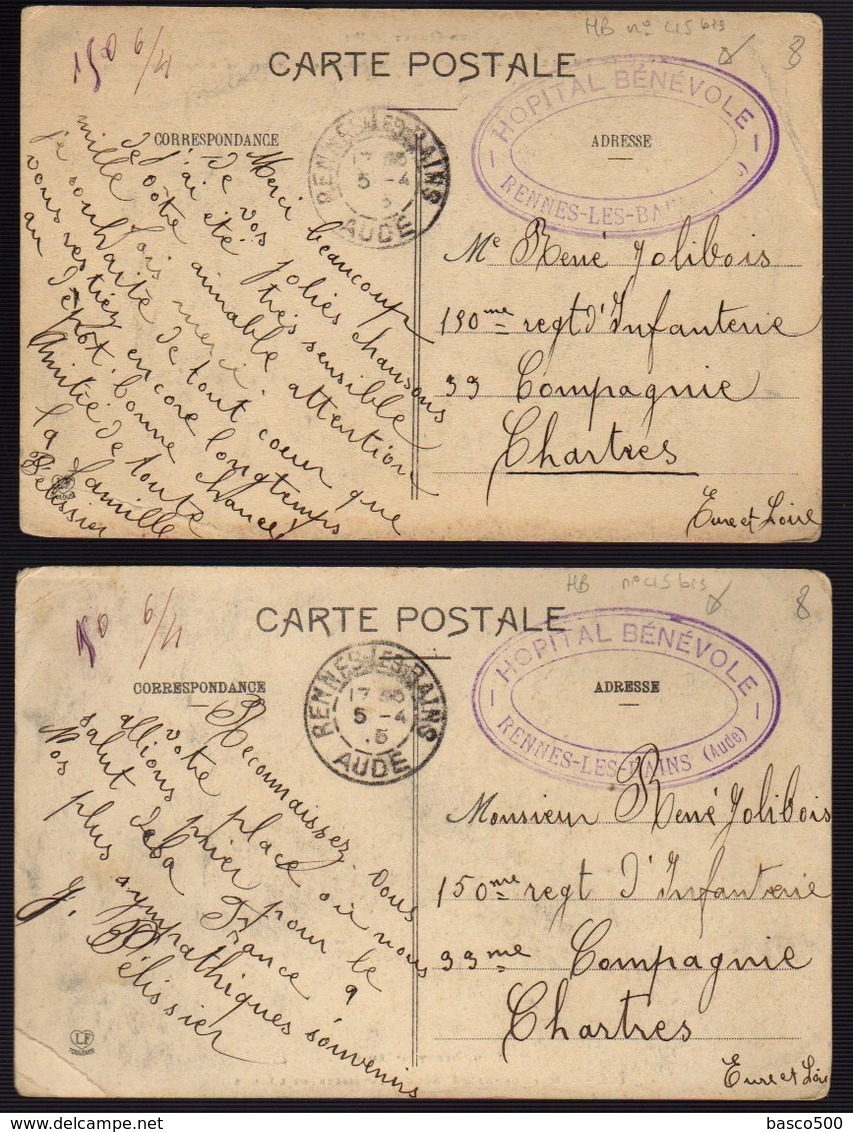 HB nº cis bis
8
150 6/4
CARTE POSTALE
HOPITAL BÉNÉVOLE
RENNES-LES-BA
CORRESPONDANCE
ADRESSE
RENNES-LES-BAINS
17
5 -4
5
AUDE
Merci beaucoup
de vos jolies chansons
j'ai été très sensible
de votre aimable attention
mille fois merci.
je souhaite de tout coeur que
vous restiez encore longtemps
au dépot. bonne chance!
Amitié de toute
la famille
Pélissier
Mr René Jolibois
150me regt d'Infanterie
33 Compagnie
Chartres
Eure et Loire
HB nº cis bis
8
150 6/4
CARTE POSTALE
HOPITAL BÉNÉVOLE
RENNES-LES-BAINS (Aude)
CORRESPONDANCE
ADRESSE
RENNES-LES-BAINS
17
5 -4
.5
AUDE
Reconnaissez-vous
votre place où nous
allions prier pour le
salut de la France
Nos plus sympathiques souvenirs
J. Pélissier
Monsieur René Jolibois
150me regt d'Infanterie
33me Compagnie
Chartres
Eure et Loire
LF
TOULOUSE
www.delcampe.net
basco500